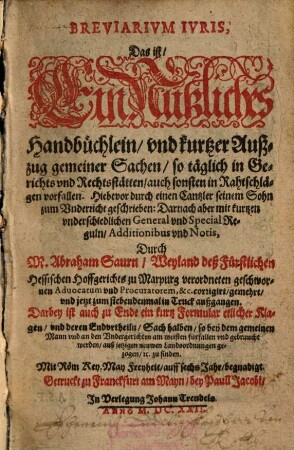 BREVIARIVM IVRIS,
Das ist/
Ein Nützlichs
Handbüchlein/ vnd kurtzer Auß-
zug gemeiner Sachen/ so täglich in Ge-
richts vnd Rechtsstätten/ auch sonsten in Rahtschlä-
gen vorfallen. Hiebevor durch einen Cantzler seinem Sohn
zum Vnderricht geschrieben: Darnach aber mit kurtzen
vnderschiedlichen General vnd Special Re-
guln/ Additionibus vnd Notis,
Durch
M. Abraham Saurn/ Weyland deß Fürstlichen
Hessischen Hoffgerichts zu Marpurg verordneten geschwor-
nen Aduocatum vnd Procuratorem, &c. corrigirt/ gemehrt/
vnd jetzt zum siebendenmal in Truck außgangen.
Darbey ist auch zu Ende ein kurtz Formular etlicher Kla-
gen/ vnd deren Endvrtheiln/ Sach halben/ so bey dem gemeinen
Mann vnd an den Vndergerichten am meisten fürfallen vnd gebraucht
werden/ auß jetzigen newen Landsordnungen ge-
zogen/ ꝛc. zu finden.
Mit Röm. Key. May. Freyheit/ auff sechs Jahr/ begnadigt.
Getruckt zu Franckfurt am Mayn/ bey Paull Jacobi/
In Verlegung Johann Trendels.
ANNO M. DC. XXII.